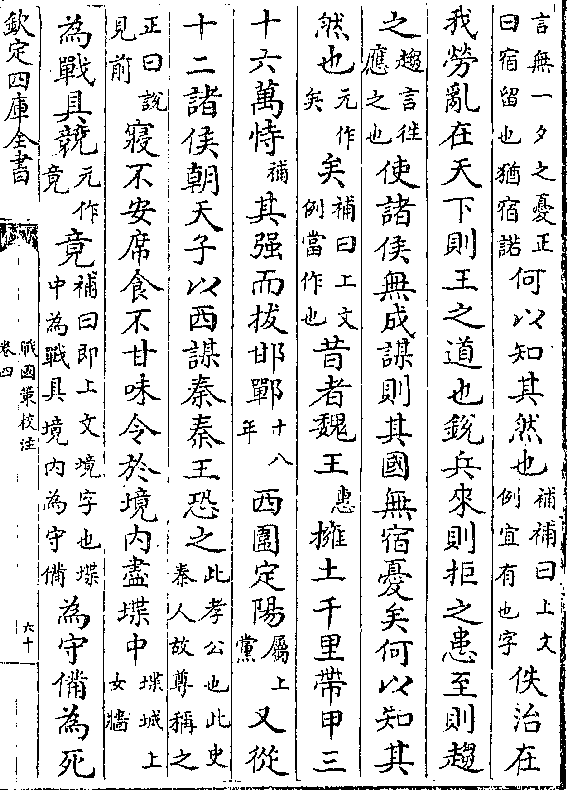 言無一夕之憂正曰宿留也猶宿諾何以知其然也補補曰上文例宜有也字佚治在
我勞亂在天下則王之道也銳兵來則拒之患至則趨
之趨言往應之也使諸侯無成謀則其國無宿憂矣何以知其
然也元作矣矣補曰上文例當作也昔者魏王惠擁土千里帶甲三
十六萬恃補其强而拔邯鄲十八年西圍定陽屬上黨又從
十二諸侯朝天子以西謀秦秦王恐之此孝公也此史秦人故尊稱之
正曰說見前寢不安席食不甘味令於境內盡堞中堞城上女牆
為戰具競元作竟竟補曰即上文境字也堞中為戰具境內為守備為守備為死
欽定四庫全書
戰國策校注
卷四
六十